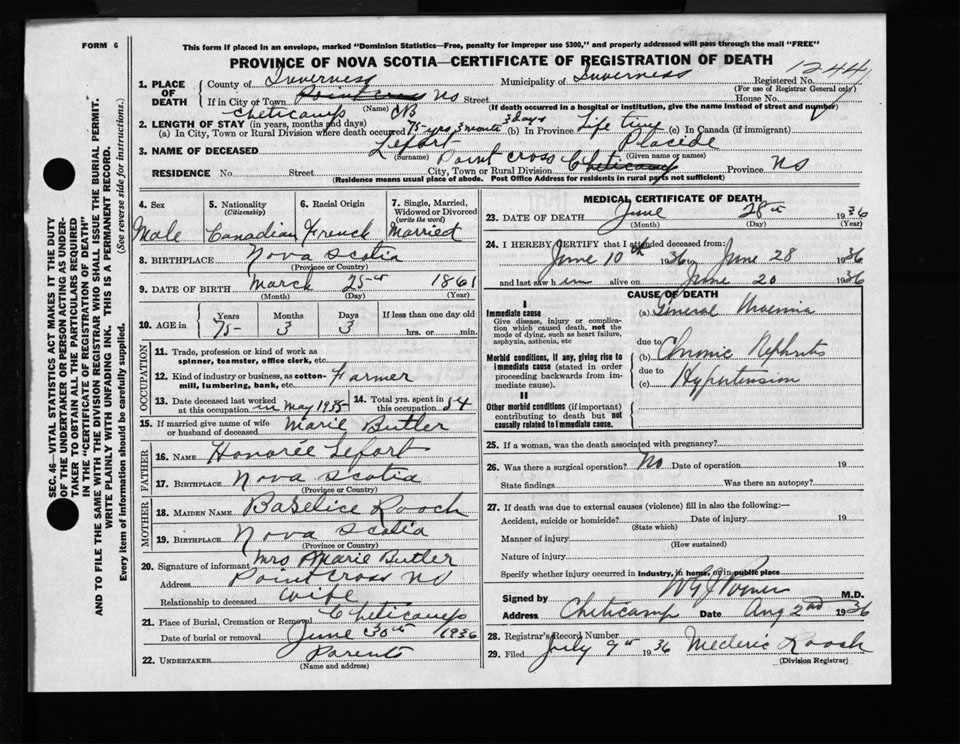 FORM 6
This form if placed in an envelope, marked "Dominion Statistics—Free, penalty for improper use $300," and properly addressed will pass through the mail "FREE"
PROVINCE OF NOVA SCOTIA—CERTIFICATE OF REGISTRATION OF DEATH
1. PLACE OF DEATH
County of Inverness Municipality of Inverness Registered No. 1244
(For use of Registrar General only)
If in City or Town Point cross NS Street House No.
(Name) (If death occurred in a hospital or institution, give the name instead of street and number)
Cheticamp
2. LENGTH OF STAY (in years, months and days)
(a) In City, Town or Rural Division where death occurred 75 yrs 3 months 3 days (b) In Province Life time (c) In Canada (if immigrant)
3. NAME OF DECEASED Lefort Placide
(Surname) (Given name or names)
RESIDENCE No. Street Point cross Cheticamp City, Town or Rural Division Province NS
(Residence means usual place of abode. Post Office Address for residents in rural parts not sufficient)
4. Sex Male
5. Nationality (Citizenship) Canadian
6. Racial Origin French
7. Single, Married, Widowed or Divorced (write the word) Married
8. BIRTHPLACE Nova Scotia
(Province or Country)
9. DATE OF BIRTH March 25th 1861
(Month) (Day) (Year)
10. AGE in Years 75 Months 3 Days 3 If less than one day old hrs. or min.
OCCUPATION
11. Trade, profession or kind of work as spinner, teamster, office clerk, etc.
12. Kind of industry or business, as cotton-mill, lumbering, bank, etc. Farmer
13. Date deceased last worked at this occupation in May 1935
14. Total yrs. spent in this occupation 54
15. If married give name of wife or husband of deceased Marie Butler
FATHER
16. NAME Honorée Lefort
17. BIRTHPLACE Nova Scotia
(Province or Country)
MOTHER
18. MAIDEN NAME Baselice Roach
19. BIRTHPLACE Nova Scotia
(Province or Country)
20. Signature of informant Mrs Marie Butler
Address Point cross NS
Relationship to deceased wife
21. Place of Burial, Cremation or Removal Cheticamp
Date of burial or removal June 30th 1936
22. UNDERTAKER Parents
(Name and address)
MEDICAL CERTIFICATE OF DEATH
23. DATE OF DEATH June 28th 1936
(Month) (Day) (Year)
24. I HEREBY CERTIFY that I attended deceased from:
June 10th 1936 to June 28 1936
and last saw him alive on June 20 1936
CAUSE OF DEATH
I
Immediate cause
Give disease, injury or complication which caused death, not the mode of dying, such as heart failure, asphyxia, asthenia, etc
(a) General Uraemia
due to
Morbid conditions, if any, giving rise to immediate cause (stated in order proceeding backwards from immediate cause).
(b) Chronic Nephritis
due to
(c) Hypertension
II
Other morbid conditions (if important) contributing to death but not causally related to Immediate cause.
25. If a woman, was the death associated with pregnancy?
26. Was there a surgical operation? No Date of operation 19
State findings Was there an autopsy?
27. If death was due to external causes (violence) fill in also the following:—
Accident, suicide or homicide? Date of injury 19
(State which)
Manner of injury
(How sustained)
Nature of injury
Specify whether injury occurred in Industry, in home, or in public place
Signed by M.D.
Address Cheticamp Date Aug 2nd 1936
28. Registrar's Record Number
29. Filed July 9th 1936 Mederic Roach
(Division Registrar)
SEC. 46—VITAL STATISTICS ACT MAKES IT THE DUTY
OF THE UNDERTAKER OR PERSON ACTING AS UNDER-
TAKER TO OBTAIN ALL THE PARTICULARS REQUIRED
IN THE "CERTIFICATE OF REGISTRATION OF DEATH"
AND TO FILE THE SAME WITH THE DIVISION REGISTRAR WHO SHALL ISSUE THE BURIAL PERMIT.
WRITE PLAINLY WITH UNFADING INK. THIS IS A PERMANENT RECORD.
Every item of information should be carefully supplied. (See reverse side for instructions.)